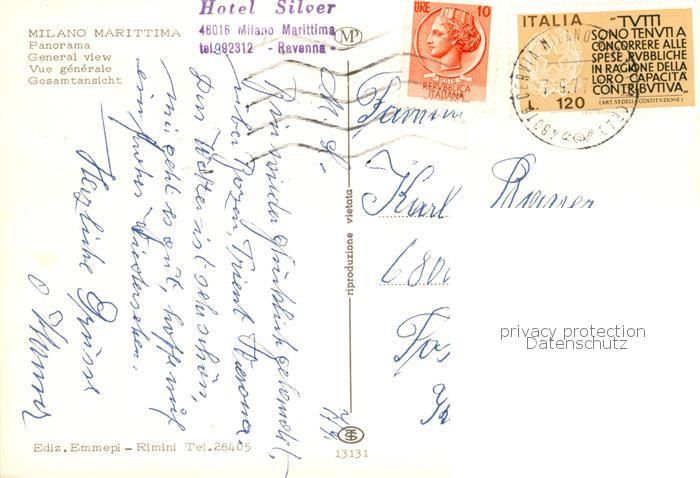 MILANO MARITTIMA
Panorama
General view
Vue générale
Gesamtansicht
Hotel Silver
48016 Milano Marittima
tel.992312 - Ravenna -
MP
LIRE 10
POSTE
REPVBBLICA
ITALIANA
ITALIA
L. 120
"TVTTI
SONO TENVTI A
CONCORRERE ALLE
SPESE PVBBLICHE
IN RAGIONE DELLA
LORO CAPACITÀ
CONTRIBVTIVA„
(ART. 53 DELLA COSTITVZIONE)
CERVIA MILANO
Bin wieder glücklich gelandet,
über Bozen, Trient Verona
Das Wetter ist sehr schön,
mir geht es gut, hoffe auf
ein frohes Wiedersehen.
Herzliche Grüsse
Karl
riproduzione vietata
privacy protection
Datenschutz
Ediz. Emmepi - Rimini Tel. 28405
13131